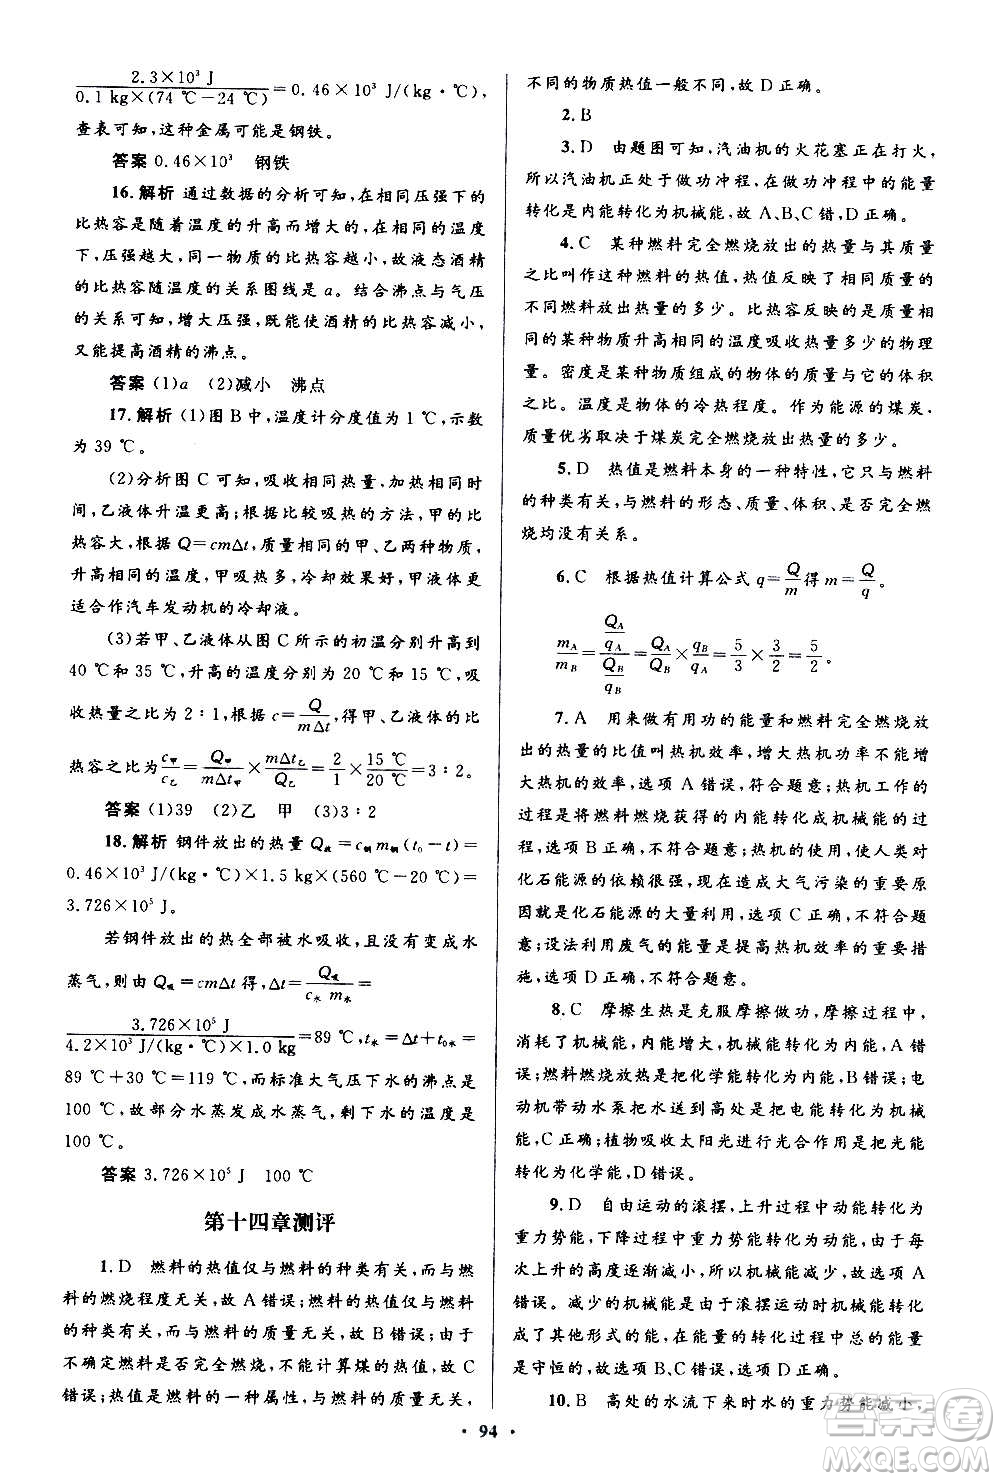 2.3×10³ J
0.1 kg×(74 ℃－24 ℃) ＝0.46×10³ J/(kg·℃),
查表可知,这种金属可能是钢铁。
答案 0.46×10³　钢铁
16.解析 通过数据的分析可知,在相同压强下的
比热容是随着温度的升高而增大的,在相同的温度
下,压强越大,同一物质的比热容越小,故液态酒精
的比热容随温度的关系图线是 a。结合沸点与气压
的关系可知,增大压强,既能使酒精的比热容减小,
又能提高酒精的沸点。
答案 (1)a　(2)减小　沸点
17.解析 (1)图 B 中,温度计分度值为 1 ℃,示数
为 39 ℃。
(2)分析图 C 可知,吸收相同热量、加热相同时
间,乙液体升温更高;根据比较吸热的方法,甲的比
热容大,根据 Q＝cmΔt,质量相同的甲、乙两种物质,
升高相同的温度,甲吸热多,冷却效果好,甲液体更
适合作汽车发动机的冷却液。
(3)若甲、乙液体从图 C 所示的初温分别升高到
40 ℃和 35 ℃,升高的温度分别为 20 ℃和 15 ℃,吸
收热量之比为 2∶1,根据 c＝Q/(mΔt),得甲、乙液体的比
热容之比为 c甲/c乙＝Q甲/(mΔt甲)×mΔt乙/Q乙＝2/1×15 ℃/20 ℃＝3∶2。
答案 (1)39　(2)乙　甲　(3)3∶2
18.解析 钢件放出的热量 Q放＝c钢m钢(t₀－t)＝
0.46×10³ J/(kg·℃)×1.5 kg×(560 ℃－20 ℃)＝
3.726×10⁵ J。
若钢件放出的热全部被水吸收,且没有变成水
蒸气,则由 Q吸＝cmΔt 得,Δt＝Q吸/(c水 m水)＝
3.726×10⁵ J
4.2×10³ J/(kg·℃)×1.0 kg ＝89 ℃,t水＝Δt＋t₀水＝
89 ℃＋30 ℃＝119 ℃,而标准大气压下水的沸点是
100 ℃,故部分水蒸发成水蒸气,剩下水的温度是
100 ℃。
答案 3.726×10⁵ J　100 ℃
第十四章测评
1.D　燃料的热值仅与燃料的种类有关,而与燃
料的燃烧程度无关,故 A 错误;燃料的热值仅与燃料
的种类有关,而与燃料的质量无关,故 B 错误;由于
不确定燃料是否完全燃烧,不能计算煤的热值,故 C
错误;热值是燃料的一种属性,与燃料的质量无关,
不同的物质热值一般不同,故 D 正确。
2.B
3.D　由题图可知,汽油机的火花塞正在打火,
所以汽油机正处于做功冲程,在做功冲程中的能量
转化是内能转化为机械能,故 A、B、C 错,D 正确。
4.C　某种燃料完全燃烧放出的热量与其质量
之比叫作这种燃料的热值,热值反映了相同质量的
不同燃料放出热量的多少。比热容反映的是质量相
同的某种物质升高相同的温度吸收热量多少的物理
量。密度是某种物质组成的物体的质量与它的体积
之比。温度是物体的冷热程度。作为能源的煤炭,
质量优劣取决于煤炭完全燃烧放出热量的多少。
5.D　热值是燃料本身的一种特性,它只与燃料
的种类有关,与燃料的形态、质量、体积、是否完全燃
烧均没有关系。
6.C　根据热值计算公式 q＝Q/m得 m＝Q/q。
mA/mB＝(QA/qA)/(QB/qB)＝QA/QB×qB/qA＝5/3×3/2＝5/2。
7.A　用来做有用功的能量和燃料完全燃烧放
出的热量的比值叫热机效率,增大热机功率不能增
大热机的效率,选项 A 错误,符合题意;热机工作的
过程是将燃料燃烧获得的内能转化成机械能的过
程,选项 B 正确,不符合题意;热机的使用,使人类对
化石能源的依赖很强,现在造成大气污染的重要原
因就是化石能源的大量利用,选项 C 正确,不符合题
意;设法利用废气的能量是提高热机效率的重要措
施,选项 D 正确,不符合题意。
8.C　摩擦生热是克服摩擦做功,摩擦过程中,
消耗了机械能,内能增大,机械能转化为内能,A 错
误;燃料燃烧放热是把化学能转化为内能,B 错误;电
动机带动水泵把水送到高处是把电能转化为机械
能,C 正确;植物吸收太阳光进行光合作用是把光能
转化为化学能,D 错误。
9.D　自由运动的滚摆,上升过程中动能转化为
重力势能,下降过程中重力势能转化为动能,由于每
次上升的高度逐渐减小,所以机械能减小,故选项 A
错误。减少的机械能是由于滚摆运动时机械能转化
成了其他形式的能,在能量的转化过程中总的能量
是守恒的,故选项 B、C 错误,选项 D 正确。
10.B　高处的水流下来时水的重力势能减小,
· 94 ·
答案圈
MXQE.COM